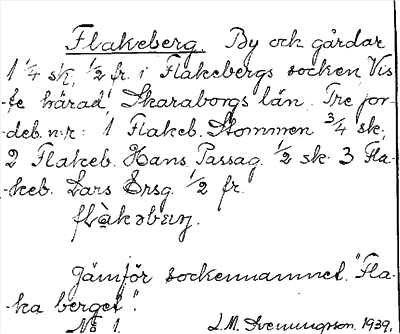 Flakeberg. By och gårdar
1 1/4 sk, 1/2 fr. i Flakebergs socken Vis-
-te härad, Skaraborgs län. Tre jor-
deb. n:r: 1 Flakeb. Stommen 3/4 sk,
2 Flakeb. Hans Passag. 1/2 sk. 3 Fla-
-keb. Lars Ersg. 1/2 fr.
Jämför sockennamnet. "Fla-
ka berget".
No 1. L.M. Svenungsson. 1939.